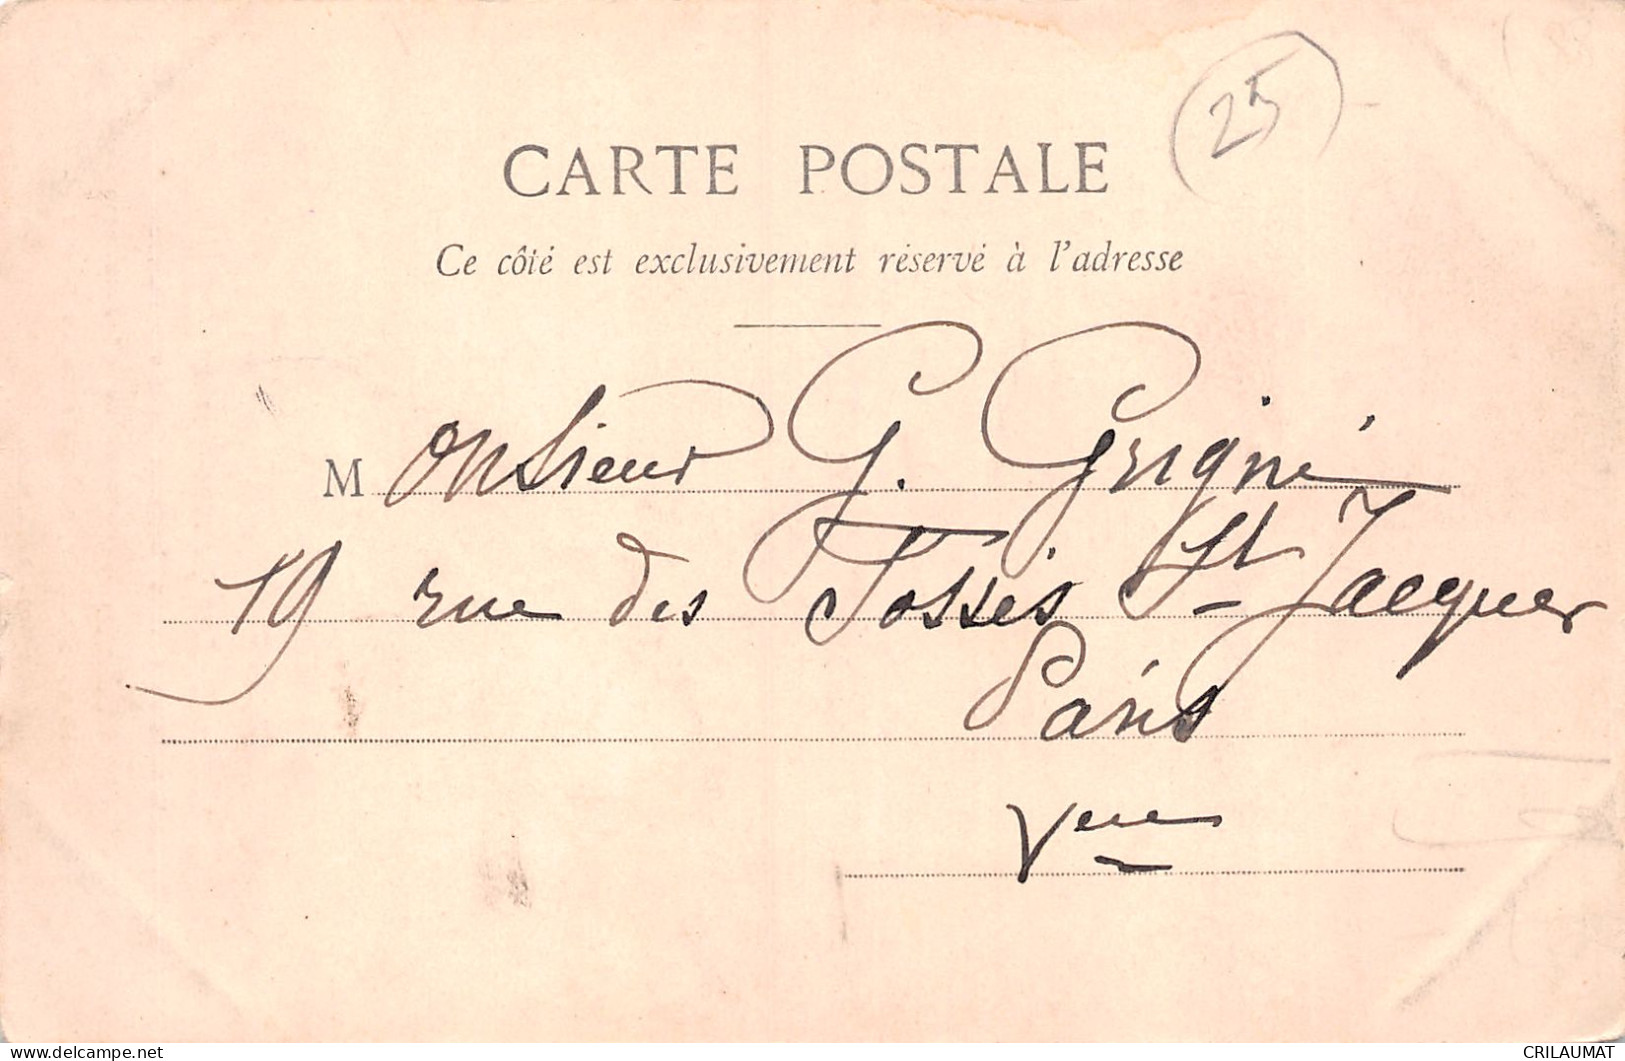 25
CARTE POSTALE
Ce côté est exclusivement réservé à l'adresse
Monsieur G. Grigné
19 rue des Fossés St Jacques
Paris
Veme
delcampe.net
CRILAUMAT